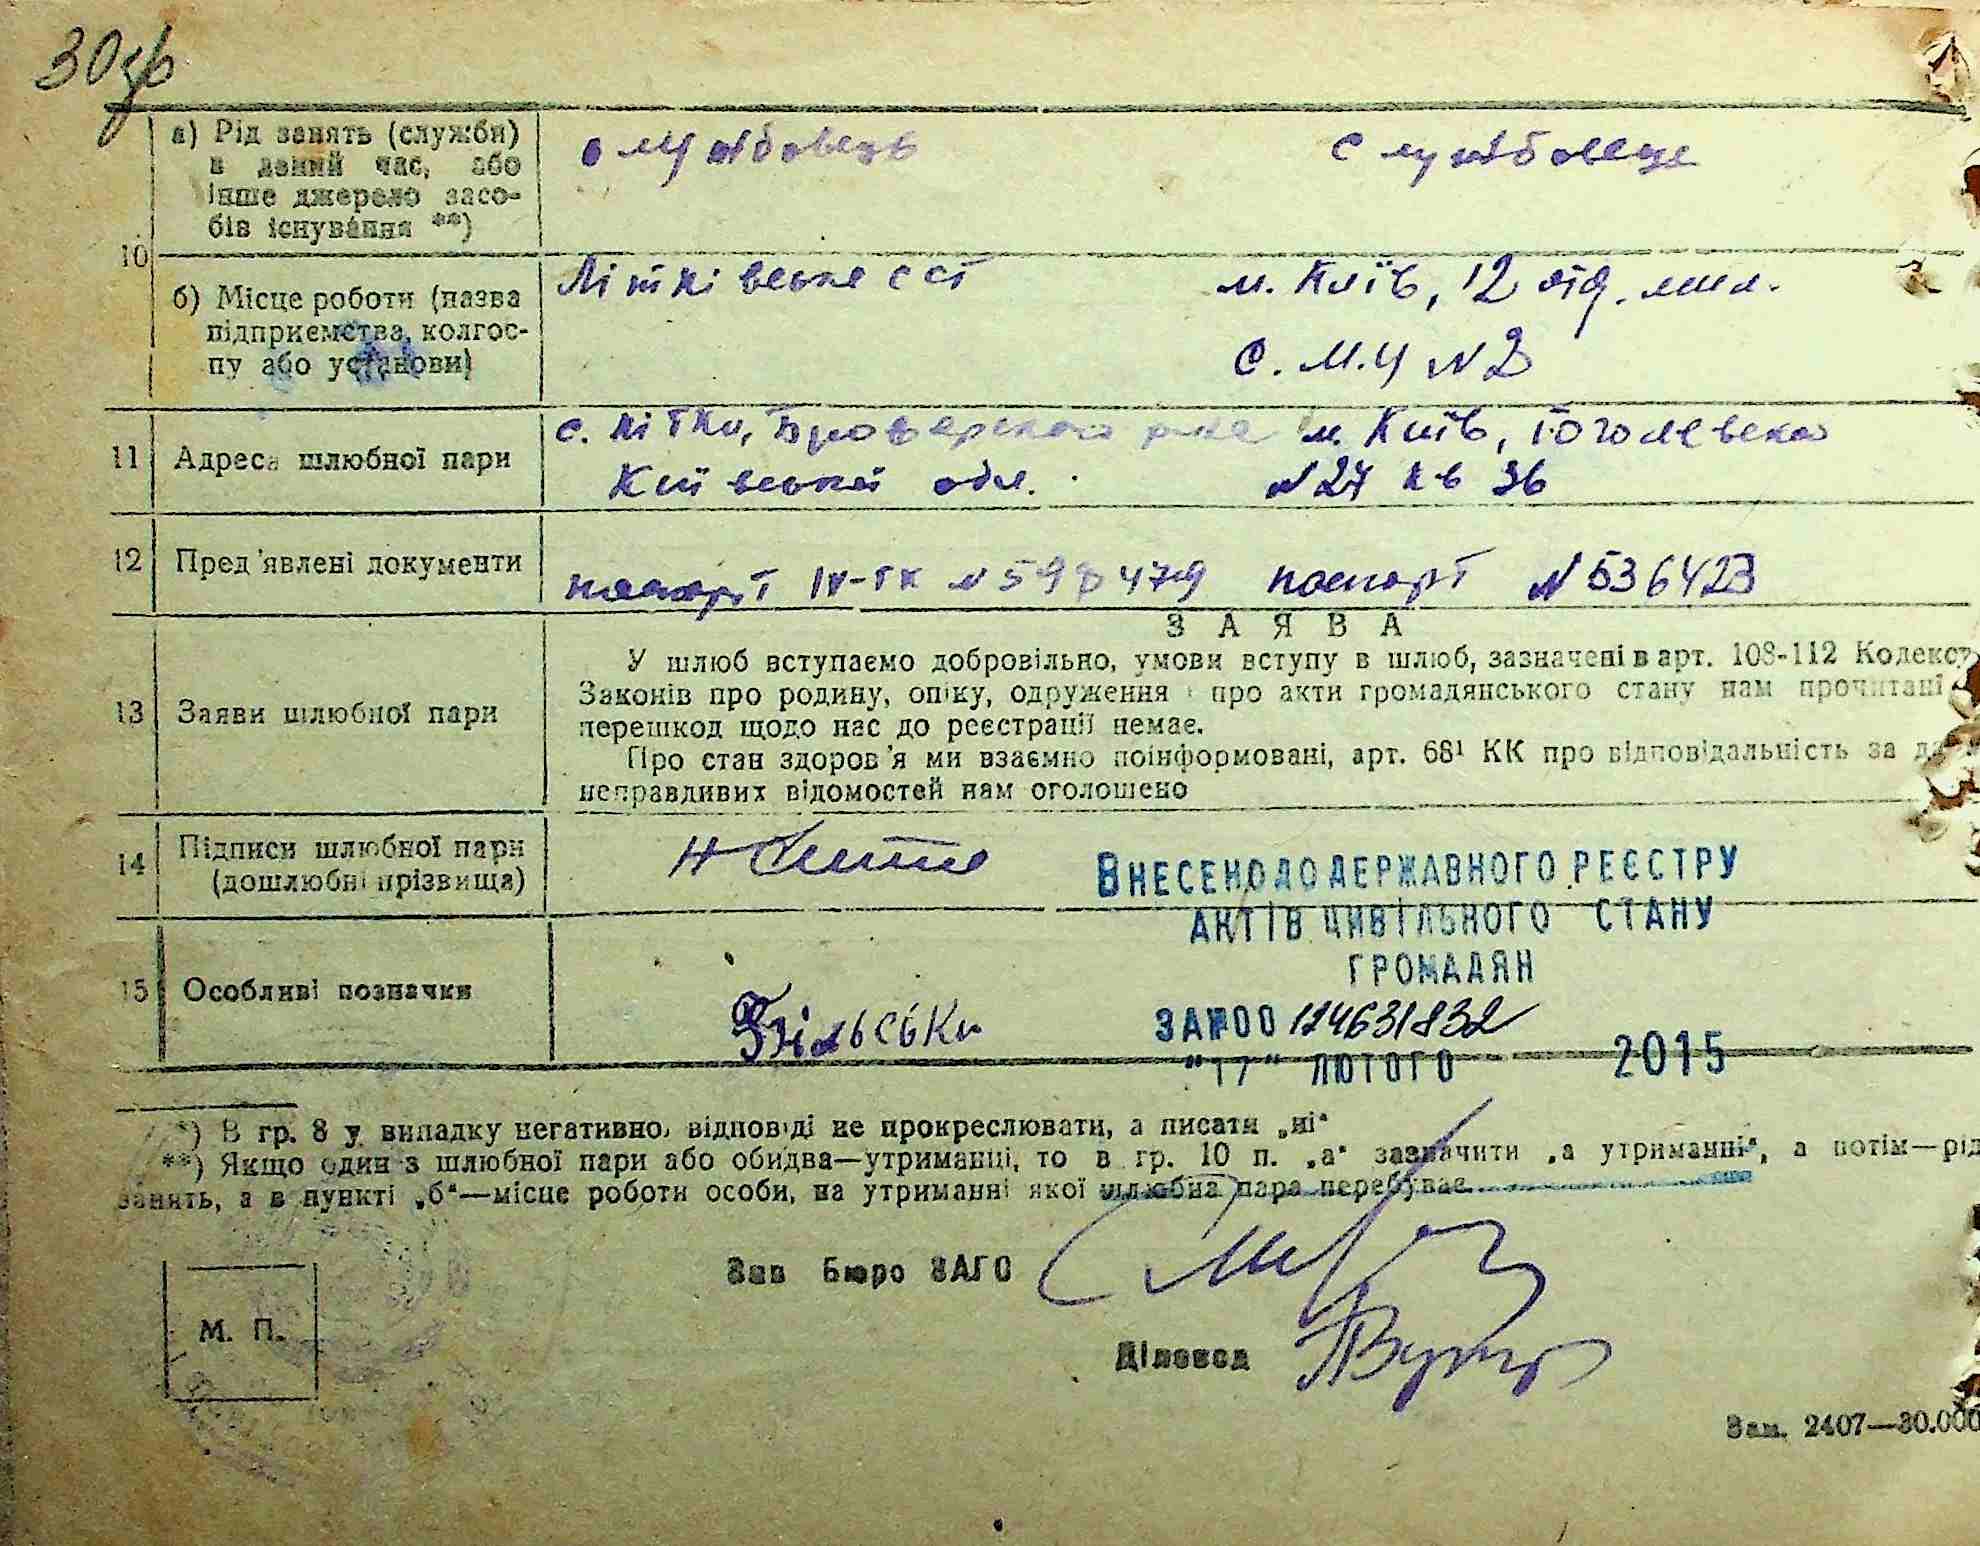 30зв
а) Рід занять (служби)
в даний час, або
інше джерело засо-
бів існування **)
службовець
службовець
10
б) Місце роботи (назва
підприємства, колгос-
пу або установи)
Літківське ССТ
м. Київ, 12 отд. мил.
С. М. Ч №2
11
Адреса шлюбної пари
с. Літки, Броварського р-на
Київської обл.
м. Київ, Гоголевська
№27 кв 36
12
Пред'явлені документи
паспорт IV-ТК №598479
паспорт №536423
13
Заяви шлюбної пари
ЗАЯВА
У шлюб вступаємо добровільно, умови вступу в шлюб, зазначені в арт. 108-112 Кодексу
Законів про родину, опіку, одруження і про акти громадянського стану нам прочитані,
перешкод щодо нас до реєстрації немає.
Про стан здоров'я ми взаємно поінформовані, арт. 68¹ КК про відповідальність за
неправдивих відомостей нам оголошено
14
Підписи шлюбної пари
(дошлюбні прізвища)
ВНЕСЕНО ДО ДЕРЖАВНОГО РЕЄСТРУ
АКТІВ ЦИВІЛЬНОГО СТАНУ
ГРОМАДЯН
ЗА №00124631832
"17" ЛЮТОГО 2015
15
Особливі позначки
*) В гр. 8 у випадку негативної відповіді не прокреслювати, а писати „ні“
**) Якщо один з шлюбної пари або обидва—утриманці, то в гр. 10 п. „а“ зазначити „а утриманні“, а потім—рід
занять, а в пункті „б“—місце роботи особи, на утриманні якої шлюбна пара перебуває
Зав Бюро ЗАГС
М. П.
Діловод
Зам. 2407—30.000